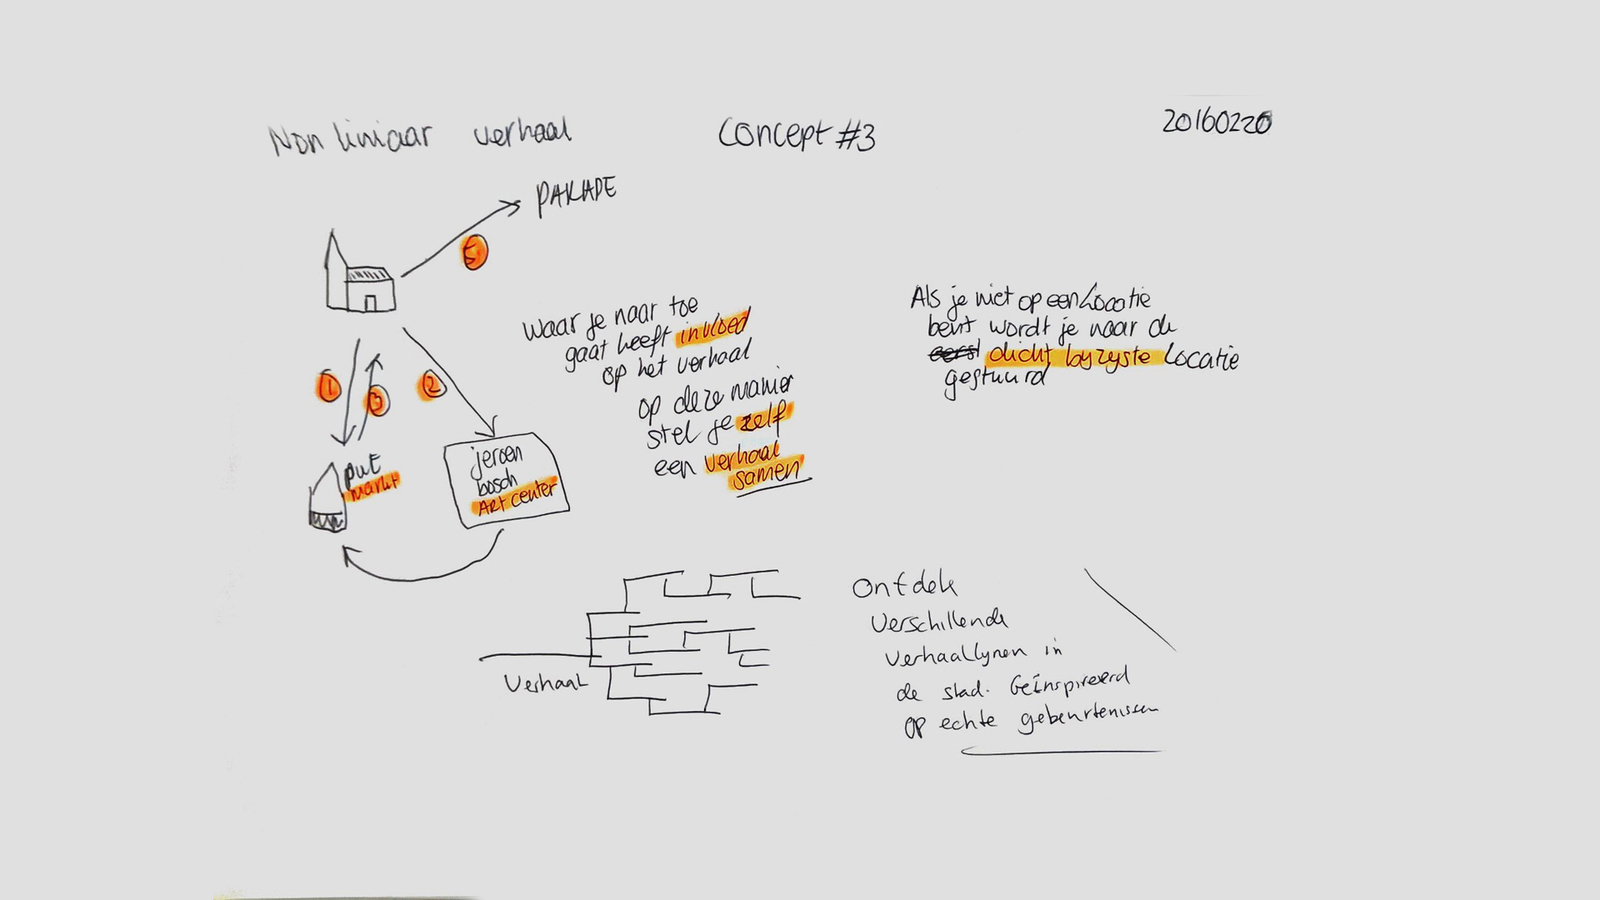 Non liniaar verhaal
Concept #3
20160220
PARADE
5
1
3
2
put
markt
jeroen
bosch
ART center
Waar je naar toe
gaat heeft invloed
op het verhaal
op deze manier
stel je zelf
een verhaal
samen
Als je niet op een Locatie
bent wordt je naar de
eerst dicht byzyste Locatie
gestuurd
Verhaal
Ontdek
Verschillende
Verhaallynen in
de stad. Geïnspireerd
op echte gebeurtenissen